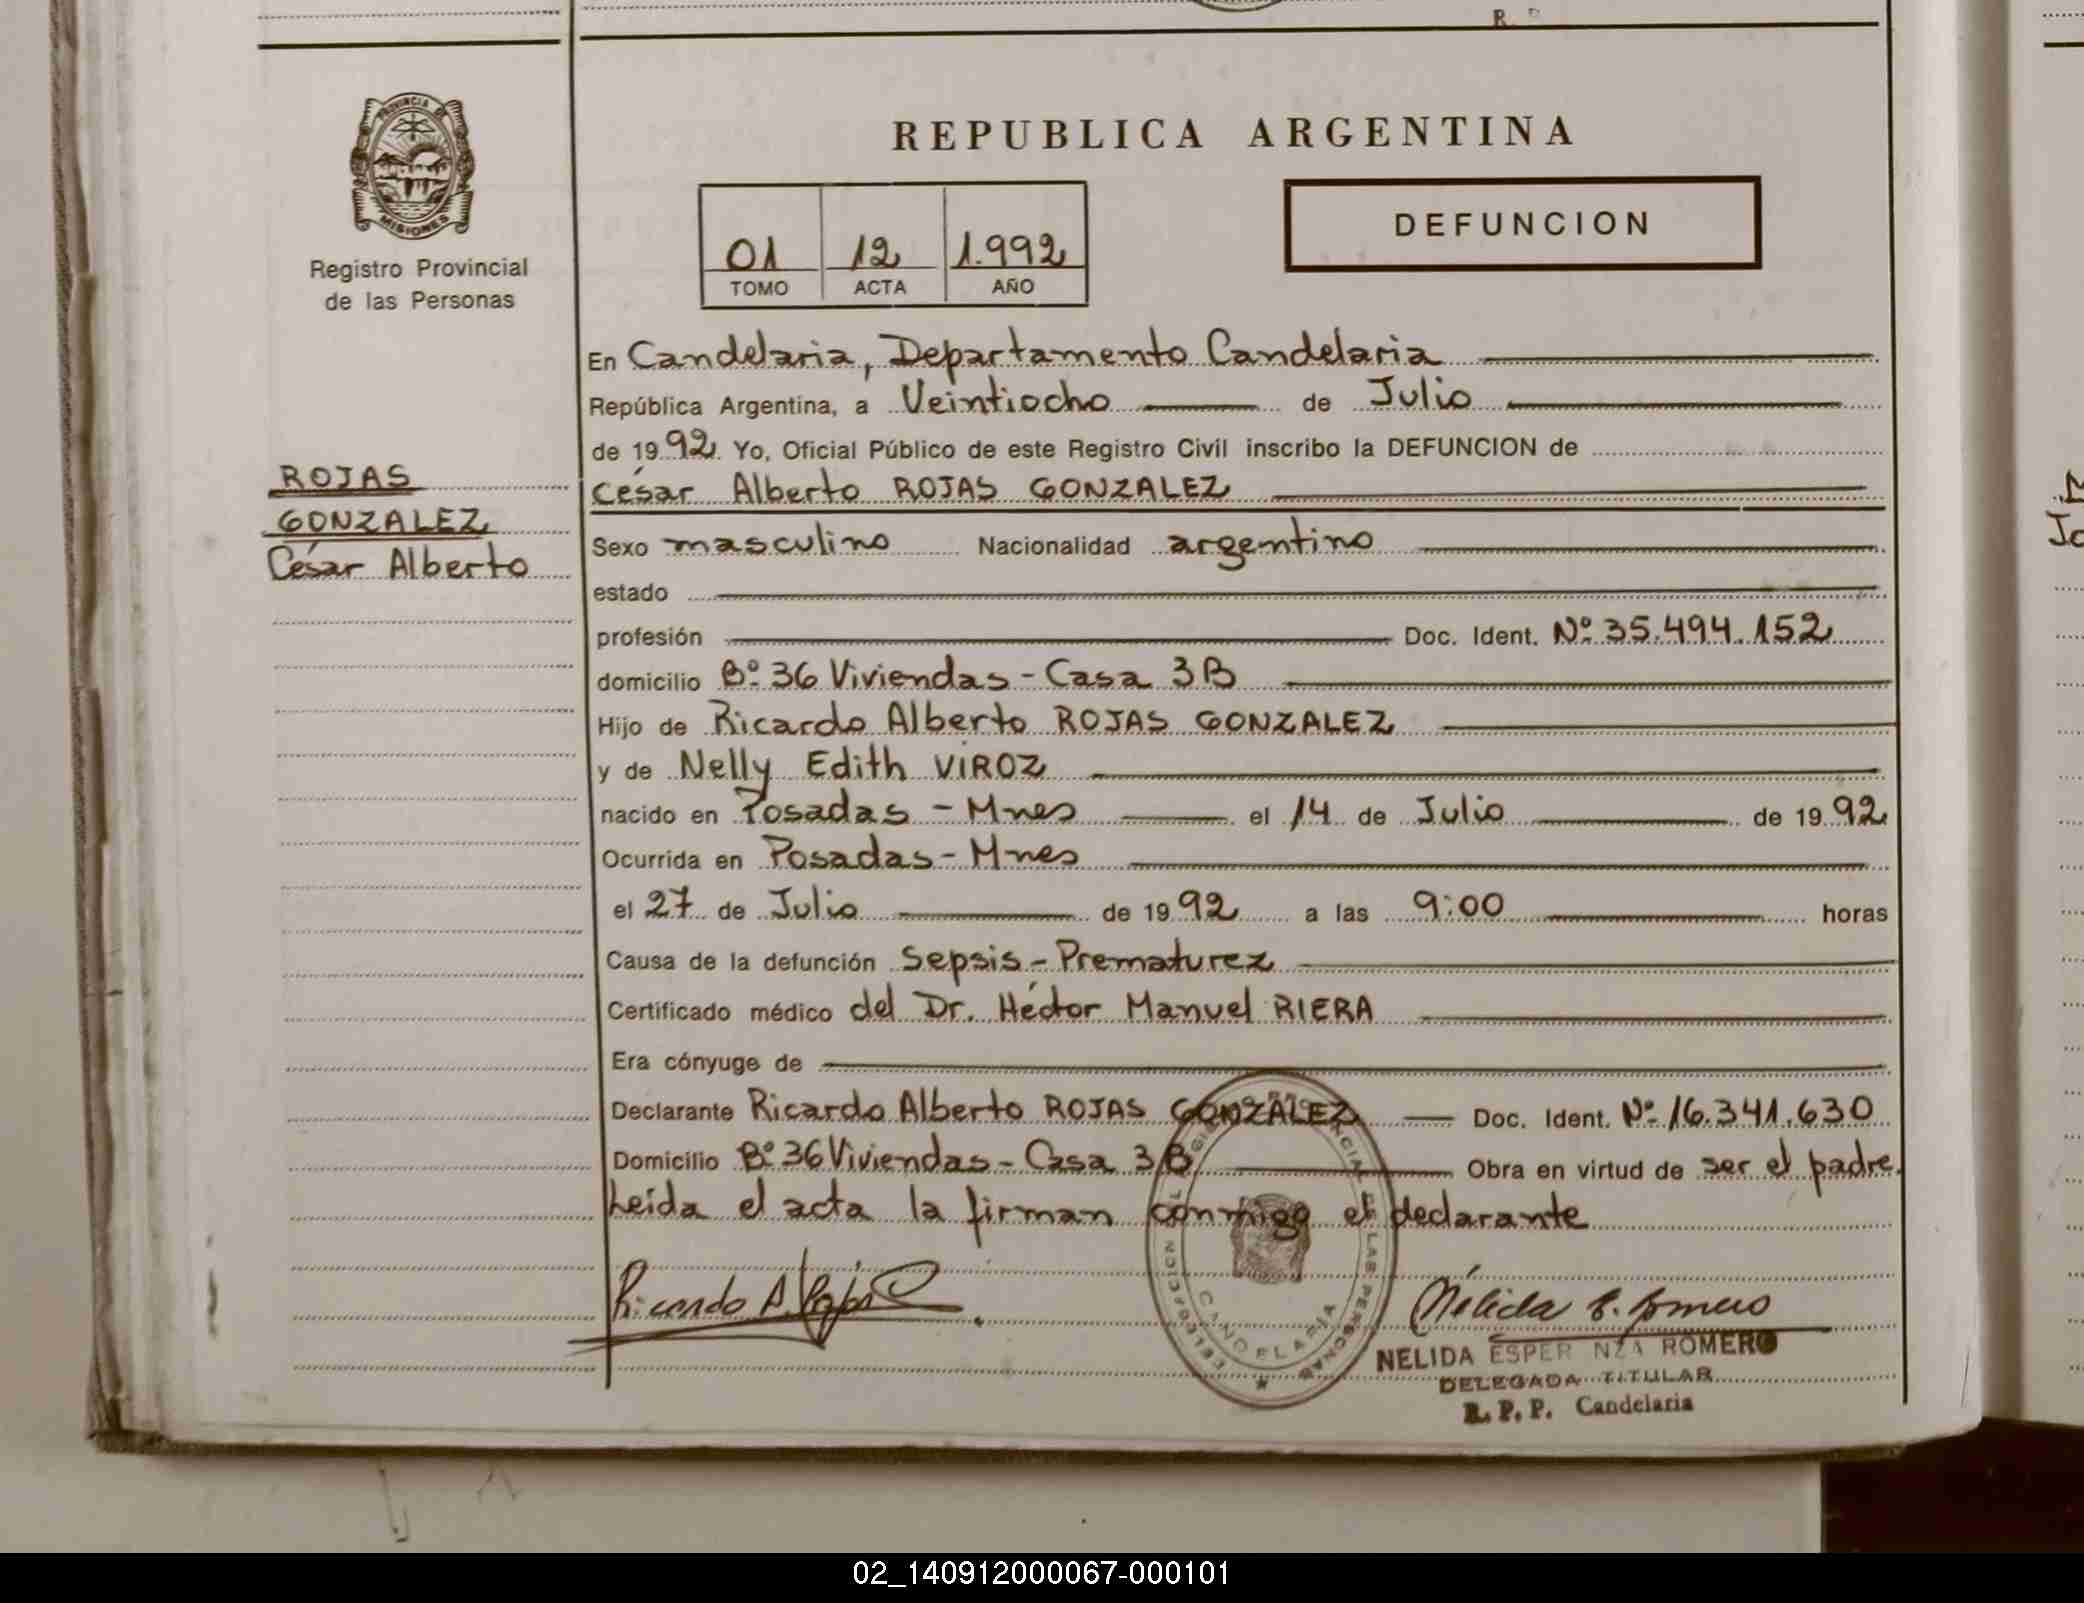 R. P
PROVINCIA DE
MISIONES
Registro Provincial
de las Personas
REPUBLICA ARGENTINA
DEFUNCION
01 12 1.992
TOMO ACTA AÑO
En Candelaria, Departamento Candelaria
República Argentina, a Veintiocho de Julio
de 1992 Yo, Oficial Público de este Registro Civil inscribo la DEFUNCION de
César Alberto ROJAS GONZALEZ
ROJAS
GONZALEZ
César Alberto
Sexo masculino Nacionalidad argentino
estado
profesión Doc. Ident. Nº 35.494.152
domicilio Bº 36 Viviendas - Casa 3B
Hijo de Ricardo Alberto ROJAS GONZALEZ
y de Nelly Edith VIROZ
nacido en Posadas - Mnes el 14 de Julio de 1992
Ocurrida en Posadas - Mnes
el 27 de Julio de 1992 a las 9:00 horas
Causa de la defunción Sepsis - Prematurez
Certificado médico del Dr. Héctor Manuel RIERA
Era cónyuge de
Declarante Ricardo Alberto ROJAS GONZALEZ Doc. Ident. Nº 16.341.630
Domicilio Bº 36 Viviendas - Casa 3B Obra en virtud de ser el padre.
Leída el acta la firman conmigo el declarante
Ricardo A. Rojas G
Nélida E. Romero
CANDELARIA
NELIDA ESPER NZA ROMERO
DELEGADA TITULAR
R. P. P. Candelaria
02_140912000067-000101